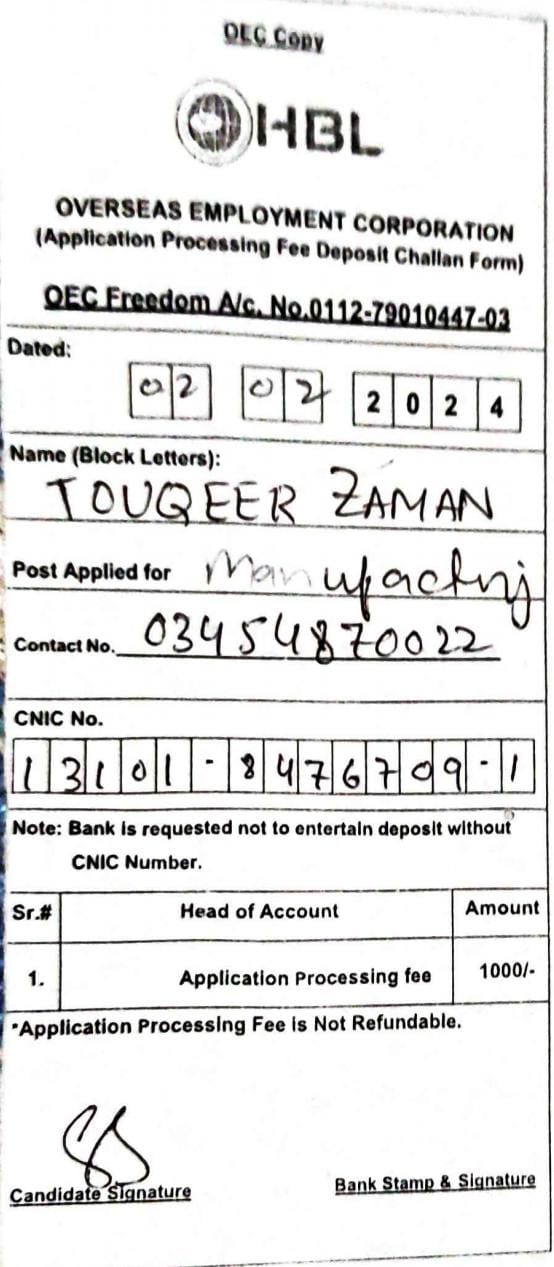 OEC Copy
HBL
OVERSEAS EMPLOYMENT CORPORATION
(Application Processing Fee Deposit Challan Form)
OEC Freedom A/c. No.0112-79010447-03
Dated:
02 02 2024
Name (Block Letters):
TOUQEER ZAMAN
Post Applied for Manufactnj
Contact No. 03454870022
CNIC No.
13101-8476709-1
Note: Bank is requested not to entertain deposit without
CNIC Number.
Sr.# Head of Account Amount
1. Application Processing fee 1000/-
*Application Processing Fee is Not Refundable.
Candidate Signature Bank Stamp & Signature